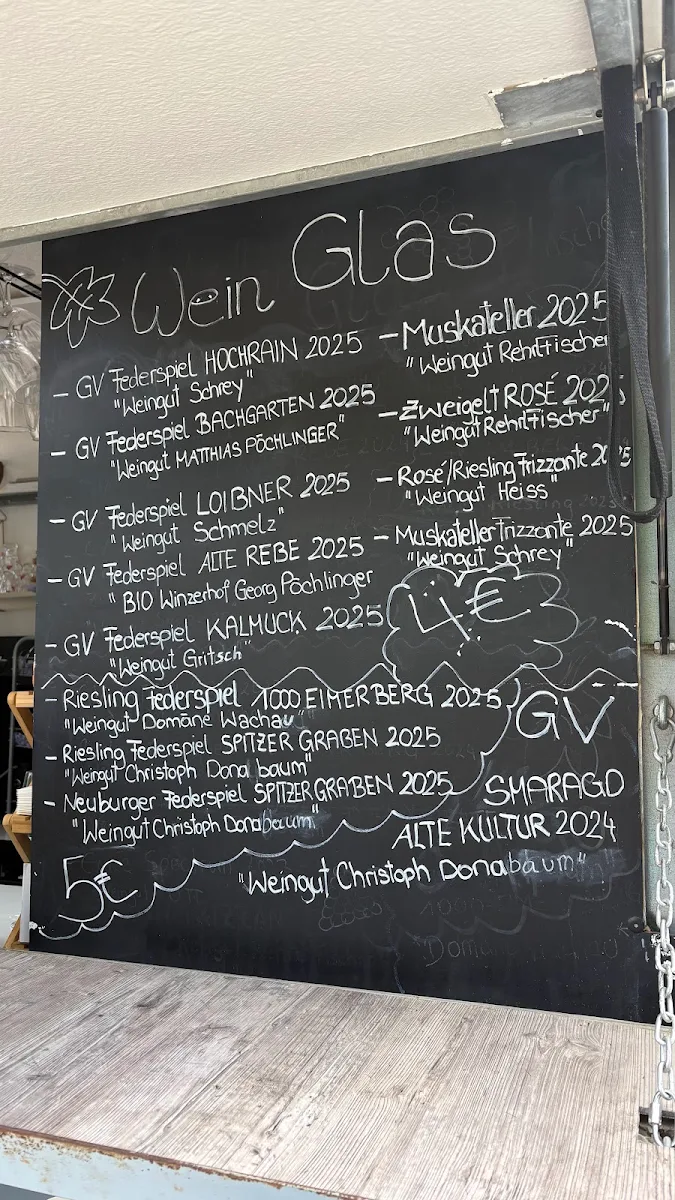 Wein Glas
- GV Federspiel HOCHRAIN 2025
"Weingut Schrey"
- GV Federspiel BACHGARTEN 2025
"Weingut MATTHIAS PÖCHLINGER"
- GV Federspiel LOIBNER 2025
"Weingut Schmelz"
- GV Federspiel ALTE REBE 2025
"BIO Winzerhof Georg Pöchlinger
- GV Federspiel KALMUCK 2025
"Weingut Gritsch"
- Muskateller 2025
"Weingut Rehrl+Fischer
- Zweigelt ROSÉ 2025
"Weingut Rehrl+Fischer"
- Rosé/Riesling Frizzante 2025
"Weingut Heiss"
- Muskateller Frizzante 2025
"Weingut Schrey"
4€
- Riesling Federspiel 1000 EIMERBERG 2025
"Weingut Domäne Wachau"
- Riesling Federspiel SPITZER GRABEN 2025
"Weingut Christoph Donabaum"
- Neuburger Federspiel SPITZER GRABEN 2025
"Weingut Christoph Donabaum"
5€
GV
SMARAGD
ALTE KULTUR 2024
"Weingut Christoph Donabaum"